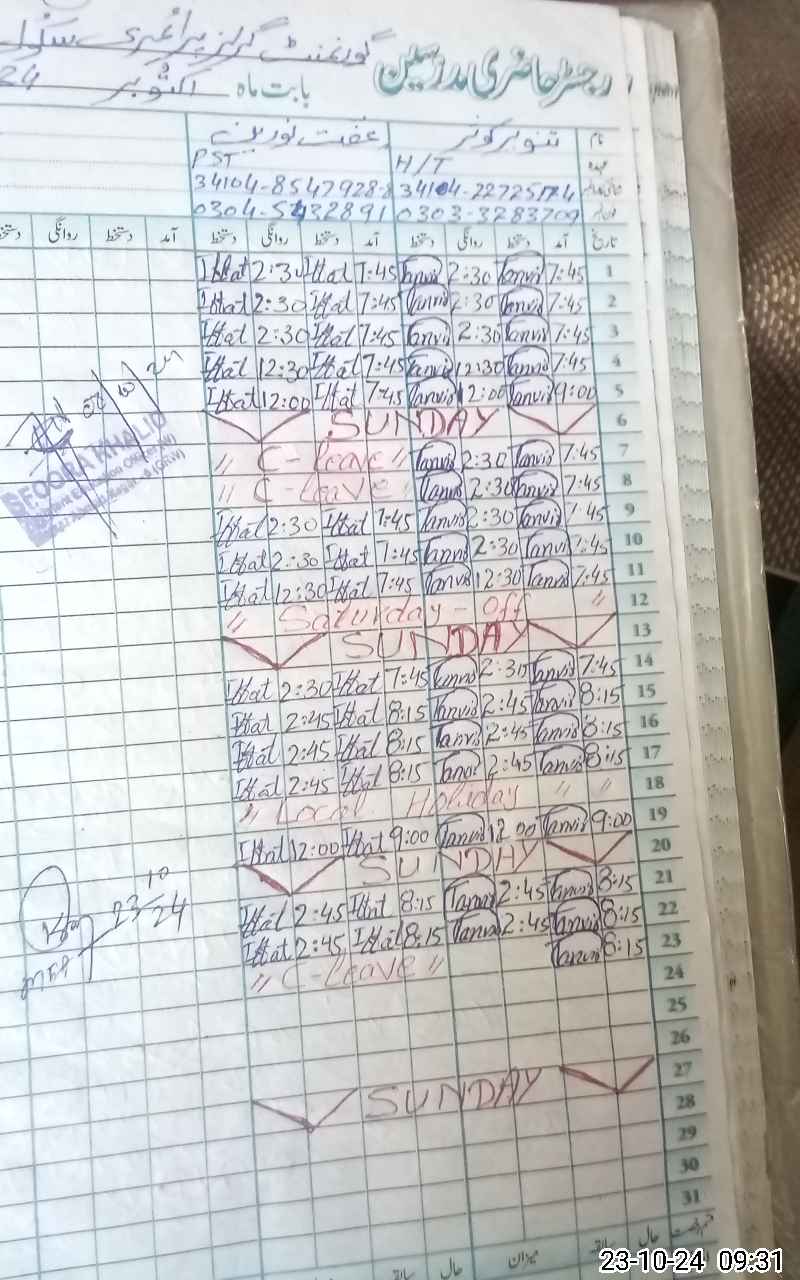 گورنمنٹ گرلز پرائمری سکول
رجسٹر حاضری مدرسین
بابت ماہ اکتوبر 24
نام تنویر کوثر عفت نورین
عہدہ H/T PST
0303-3283709
تاریخ آمد دستخط روانگی دستخط آمد دستخط روانگی دستخط آمد دستخط روانگی
1 7:45 Tanvir 2:30 Tanvir 7:45 Iffat 2:30 Iffat
2 7:45 Tanvir 2:30 Tanvir 7:45 Iffat 2:30 Iffat
3 7:45 Tanvir 2:30 Tanvir 7:45 Iffat 2:30 Iffat
4 7:45 Tanvir 12:30 Tanvir 7:45 Iffat 12:30 Iffat
5 9:00 Tanvir 12:00 Tanvir 7:45 Iffat 12:00 Iffat
6 SUNDAY
7 7:45 Tanvir 2:30 Tanvir " C-leave "
8 7:45 Tanvir 2:30 Tanvir " C-leave
9 7:45 Tanvir 2:30 Tanvir 7:45 Iffat 2:30 Iffat
10 7:45 Tanvir 2:30 Tanvir 7:45 Iffat 2:30 Iffat
11 7:45 Tanvir 12:30 Tanvir 7:45 Iffat 12:30 Iffat
12 " Saturday - off "
13 SUNDAY
14 7:45 Tanvir 2:30 Tanvir 7:45 Iffat 2:30 Iffat
15 8:15 Tanvir 2:45 Tanvir 8:15 Iffat 2:45 Iffat
16 8:15 Tanvir 2:45 Tanvir 8:15 Iffat 2:45 Iffat
17 8:15 Tanvir 2:45 Tanvir 8:15 Iffat 2:45 Iffat
18 " Local Holiday " "
19 9:00 Tanvir 12:00 Tanvir 9:00 Iffat 12:00 Iffat
20 SUNDAY
21 8:15 Tanvir 2:45 Tanvir 8:15 Iffat 2:45 Iffat
22 8:15 Tanvir 2:45 Tanvir 8:15 Iffat 2:45 Iffat
23 8:15 Tanvir " C-leave "
24
25
26
27 SUNDAY
28
29
30
31
حال سابقہ میزان حال
SEQORA KHALID
23/10/24
23-10-24 09:31